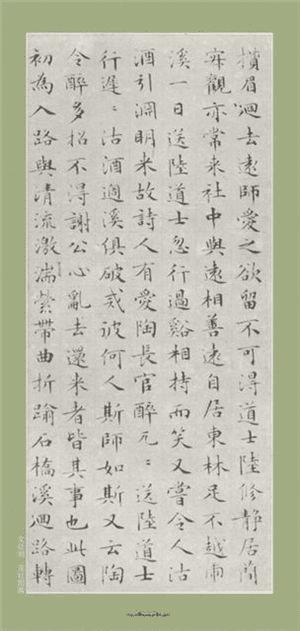 攢眉迴去遠師愛之欲留不可得道士陸修静居簡
寂觀亦常来社中與遠相善遠自居東林足不越虎
溪一日送陸道士忽行過谿相持而笑又嘗令人沽
酒引淵明来故詩人有愛陶長官醉兀〻送陸道士
行遲〻沽酒過溪俱破戒彼何人斯師如斯又云陶
令醉多招不得謝公心亂去還来者皆其事也此圖
初為入路與清流激湍縈帶曲折踰石橋溪迴路轉